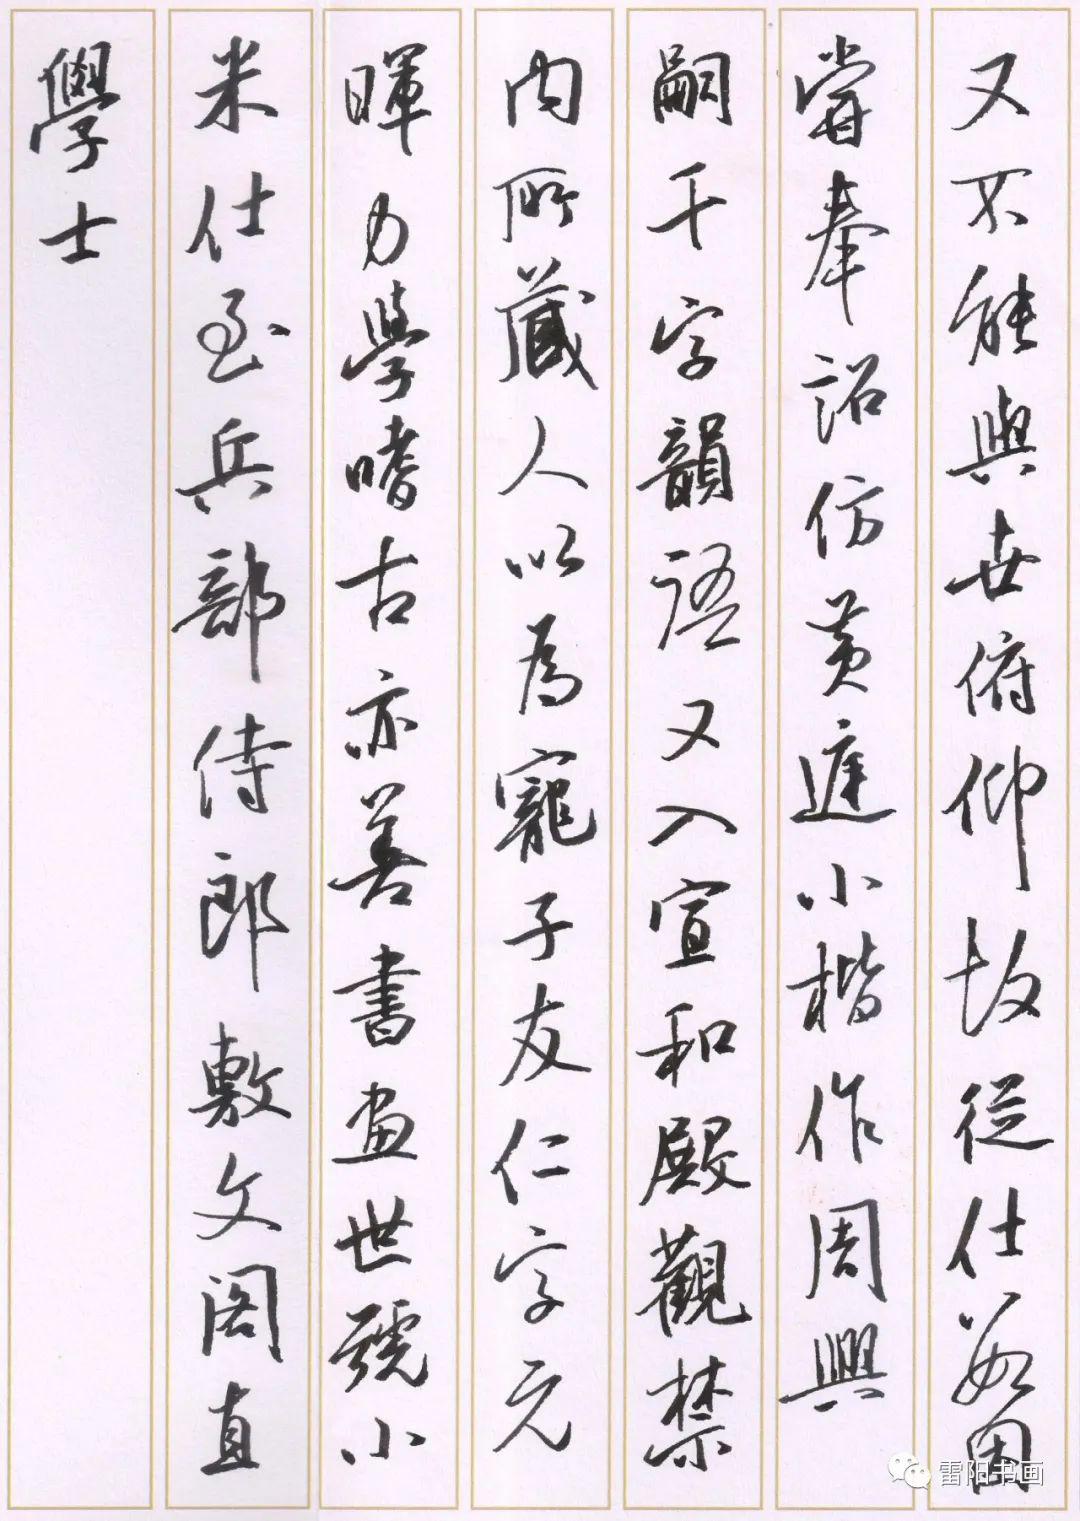 又不能與世俯仰故從仕數困
嘗奉詔仿黃庭小楷作周興
嗣千字韻語又入宣和殿觀禁
内所藏人以為寵子友仁字元
暉力學嗜古亦善書畫世號小
米仕至兵部侍郎敷文阁直
學士
雷阳书画